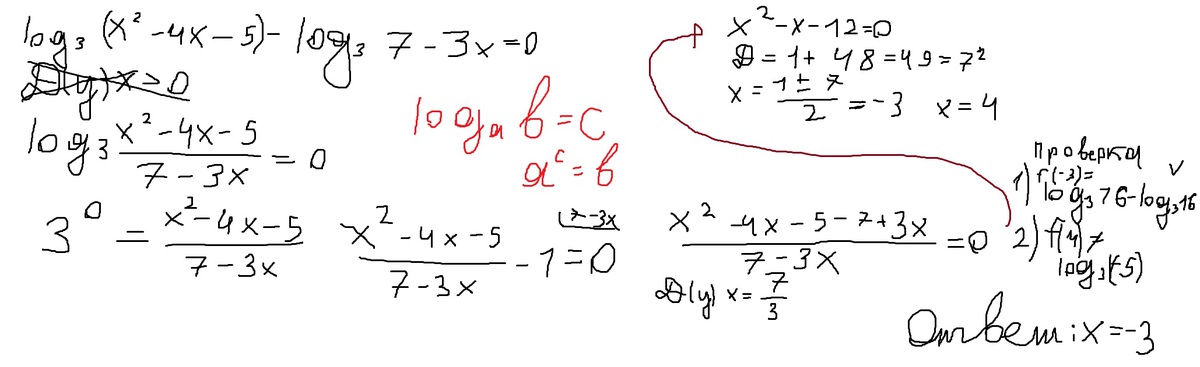 log₃ (x² -4x-5)- log₃ 7-3x=0
D(y) x>0
log₃ (x²-4x-5)/(7-3x) = 0
logₐ b = c
aᶜ = b
3⁰ = (x²-4x-5)/(7-3x)
(x²-4x-5)/(7-3x) - 1 = 0
(7-3x
(x² -4x-5-7+3x)/(7-3x) = 0
D(y) x = 7/3
x²-x-12=0
D = 1+ 48 =49= 7²
x = (1 ± 7)/2 = -3 x = 4
Проверка
1) f(-3)= ✓
log₃ 16-log₃16
2) f(4) ≠
log₃(-5)
Ответ: x = -3